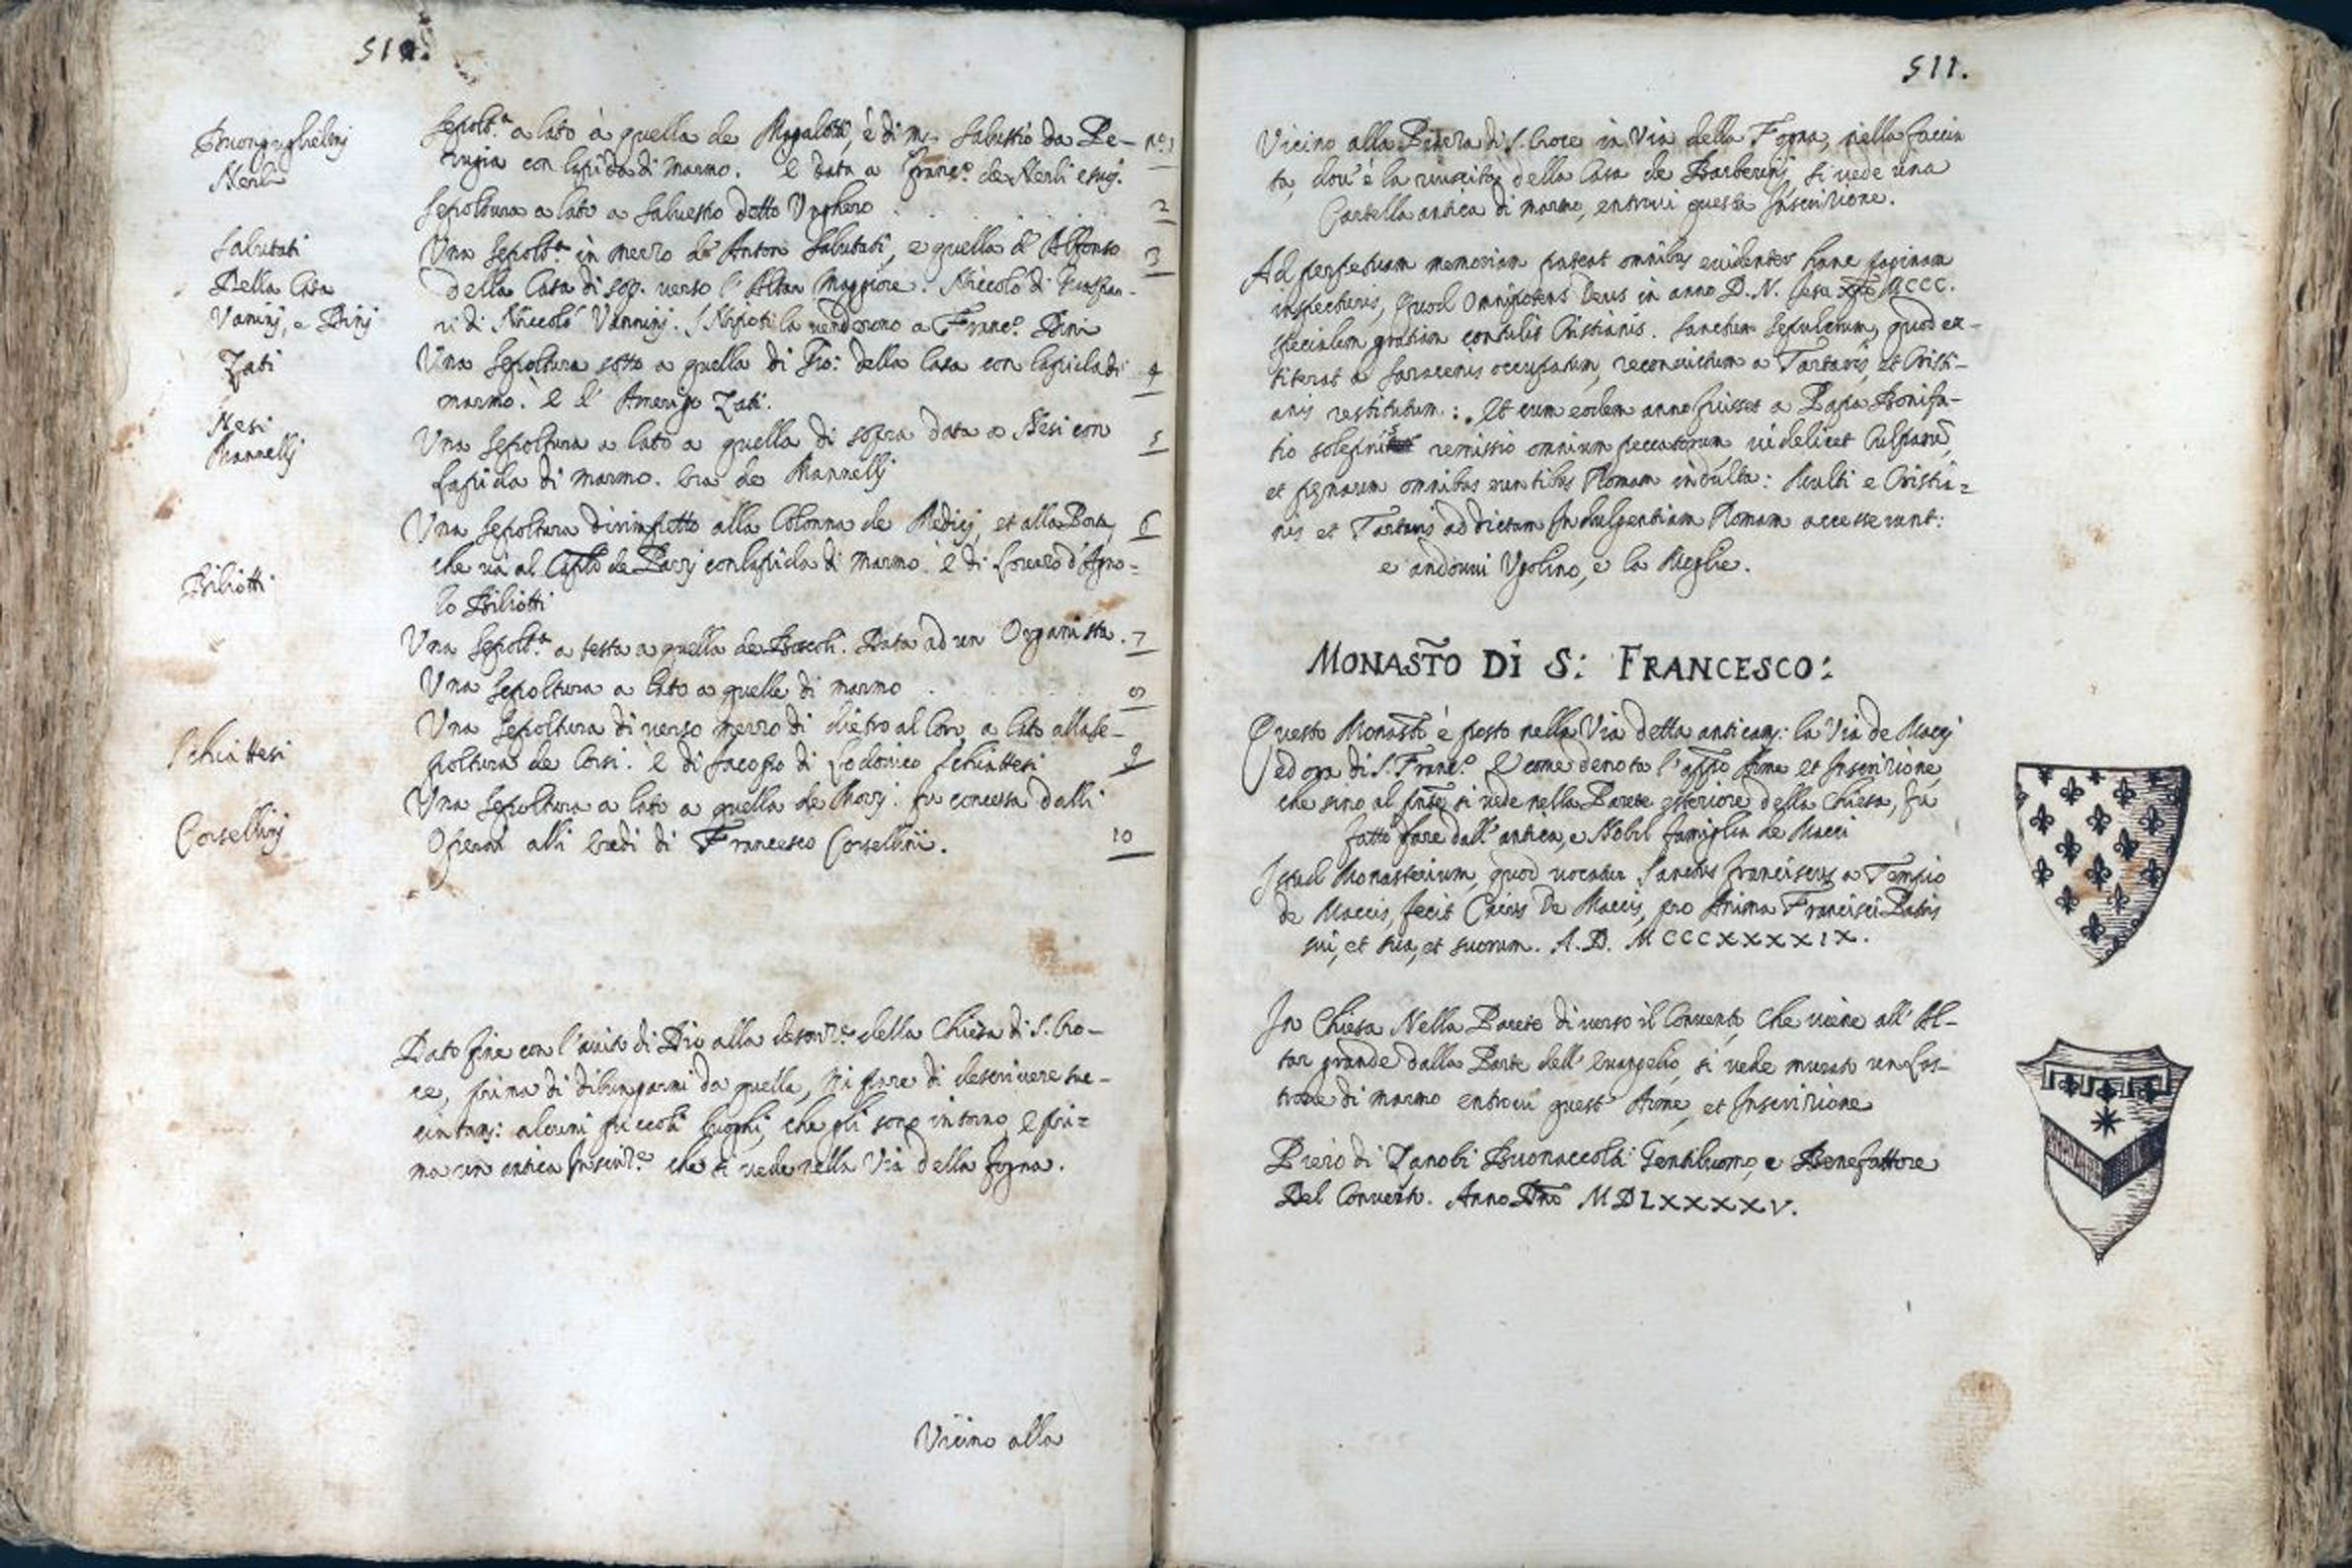 510.
Buonguglielmj
Nerli
Sepolt.ª a lato à quella de Magalotti, è di m. Salvestro da Pe- n.º 1
rugia con lapida di marmo. E data a Franc.º de Nerli e sug.
Sepoltura a lato a Salvestro detto Unghero . . . 2
Salutati
Della Casa
Vaninj, e Dinj
Una Sepolt.ª in mezzo di Anton Salutati, e quella d'Alfonso 3
della Casa di sop. verso l'Altar Maggiore. Niccolò di
ri di Niccolò Vanninj. I Nipoti la venderono a Franc.º Dini
Zati
Una Sepoltura sotto a quella di Gio: della Casa con lapida di 4
marmo. È d'Amerigo Zati.
Nesi
Mannellj
Una Sepoltura a lato a quella di sopra data a Nesi con 5
lapida di marmo. Era de Mannellj
Una Sepoltura dirimpetto alla Colonna de Medicj, et alla Porta, 6
che va al Capito de Pazzj con lapida di marmo. è di Lorenzo d'Agno=
Biliotti
lo Biliotti
Una Sepolt.ª a testa a quella de Boscoli. Data ad un Organista. 7
Una Sepoltura a lato a quelle di marmo . . . 8
Una Sepoltura di verso mezzo di dietro al Coro, a lato alla se-
Schiattesi
poltura de Corsi. è di Jacopo di Lodovico Schiattesi 9
Una Sepoltura a lato a quella de. fu concessa dalli
Corsellinj
Operai alli Eredi di Francesco Corsellini. 10
Dato fine con l'aiuto di Dio alla descriz.e della Chiesa di S. Cro-
ce, prima di dilungarmi da quella, mi pare di descrivere suc-
cintam: alcuni piccoli luoghi, che gli sono intorno, e pri=
ma un antica Inscriz.e che si vede nella Via della fogna.
Vicino alla
511.
Vicino alla Piazza di S. Croce in Via della Fogna, nella faccia
ta, dov'è la riuscita della Casa de Barberinj, si vede una
Cartella antica di marmo, entrovi questa Inscrizione.
Ad perpetuam memoriam pateat omnibus evidenter hanc paginam
inspecturis, quod Omnipotens Deus in anno D. N. Jesu Xpi MCCC.
specialem gratiam contulit Cristianis. Sanctum Sepulcrum, quod ex-
titerat a Saracenis occupatum, reconvictum a Tartaris, et Cristi-
anis restitutum: Et cum eodem anno fuisset a Papa Bonifa-
tio solepnis remissio omnium peccatorum, videlicet Culparũ,
et penarum omnibus euntibus Romam indulta: Multi e Cristia=
nis et Tartaris ad dictam Indulgentiam Romam accesserunt:
e andovvi Ugolino, e la Moglie.
MONASTO DI S: FRANCESCO:
Questo Monasto è posto nella Via detta anticam: la Via de Maccj
ed ora di S. Franc.º E come denota l'appo Arme et Inscrizione,
che sino al pnte si vede nella Parete esteriore della Chiesa, fu
fatto fare dall'antica, e Nobil famiglia de Macci
Istud Monasterium, quod vocatur Sanctus Franciscus a Tempio
de Maccis, fecit Cavis De Maccis, pro Anima Francisci Patris
sui, et sua, et suorum. A. D. MCCCXXXXIX.
In Chiesa Nella Parete di verso il Convento, che viene all'Al-
tar grande dalla Parte dell'evangelio, si vede murato un Las-
trone di marmo entrovi quest'Arme, et Inscrizione
Piero di Zanobi Buonaccolti Gentiluomo, e Benefattore
Del Convento. Anno Dño MDLXXXXV.